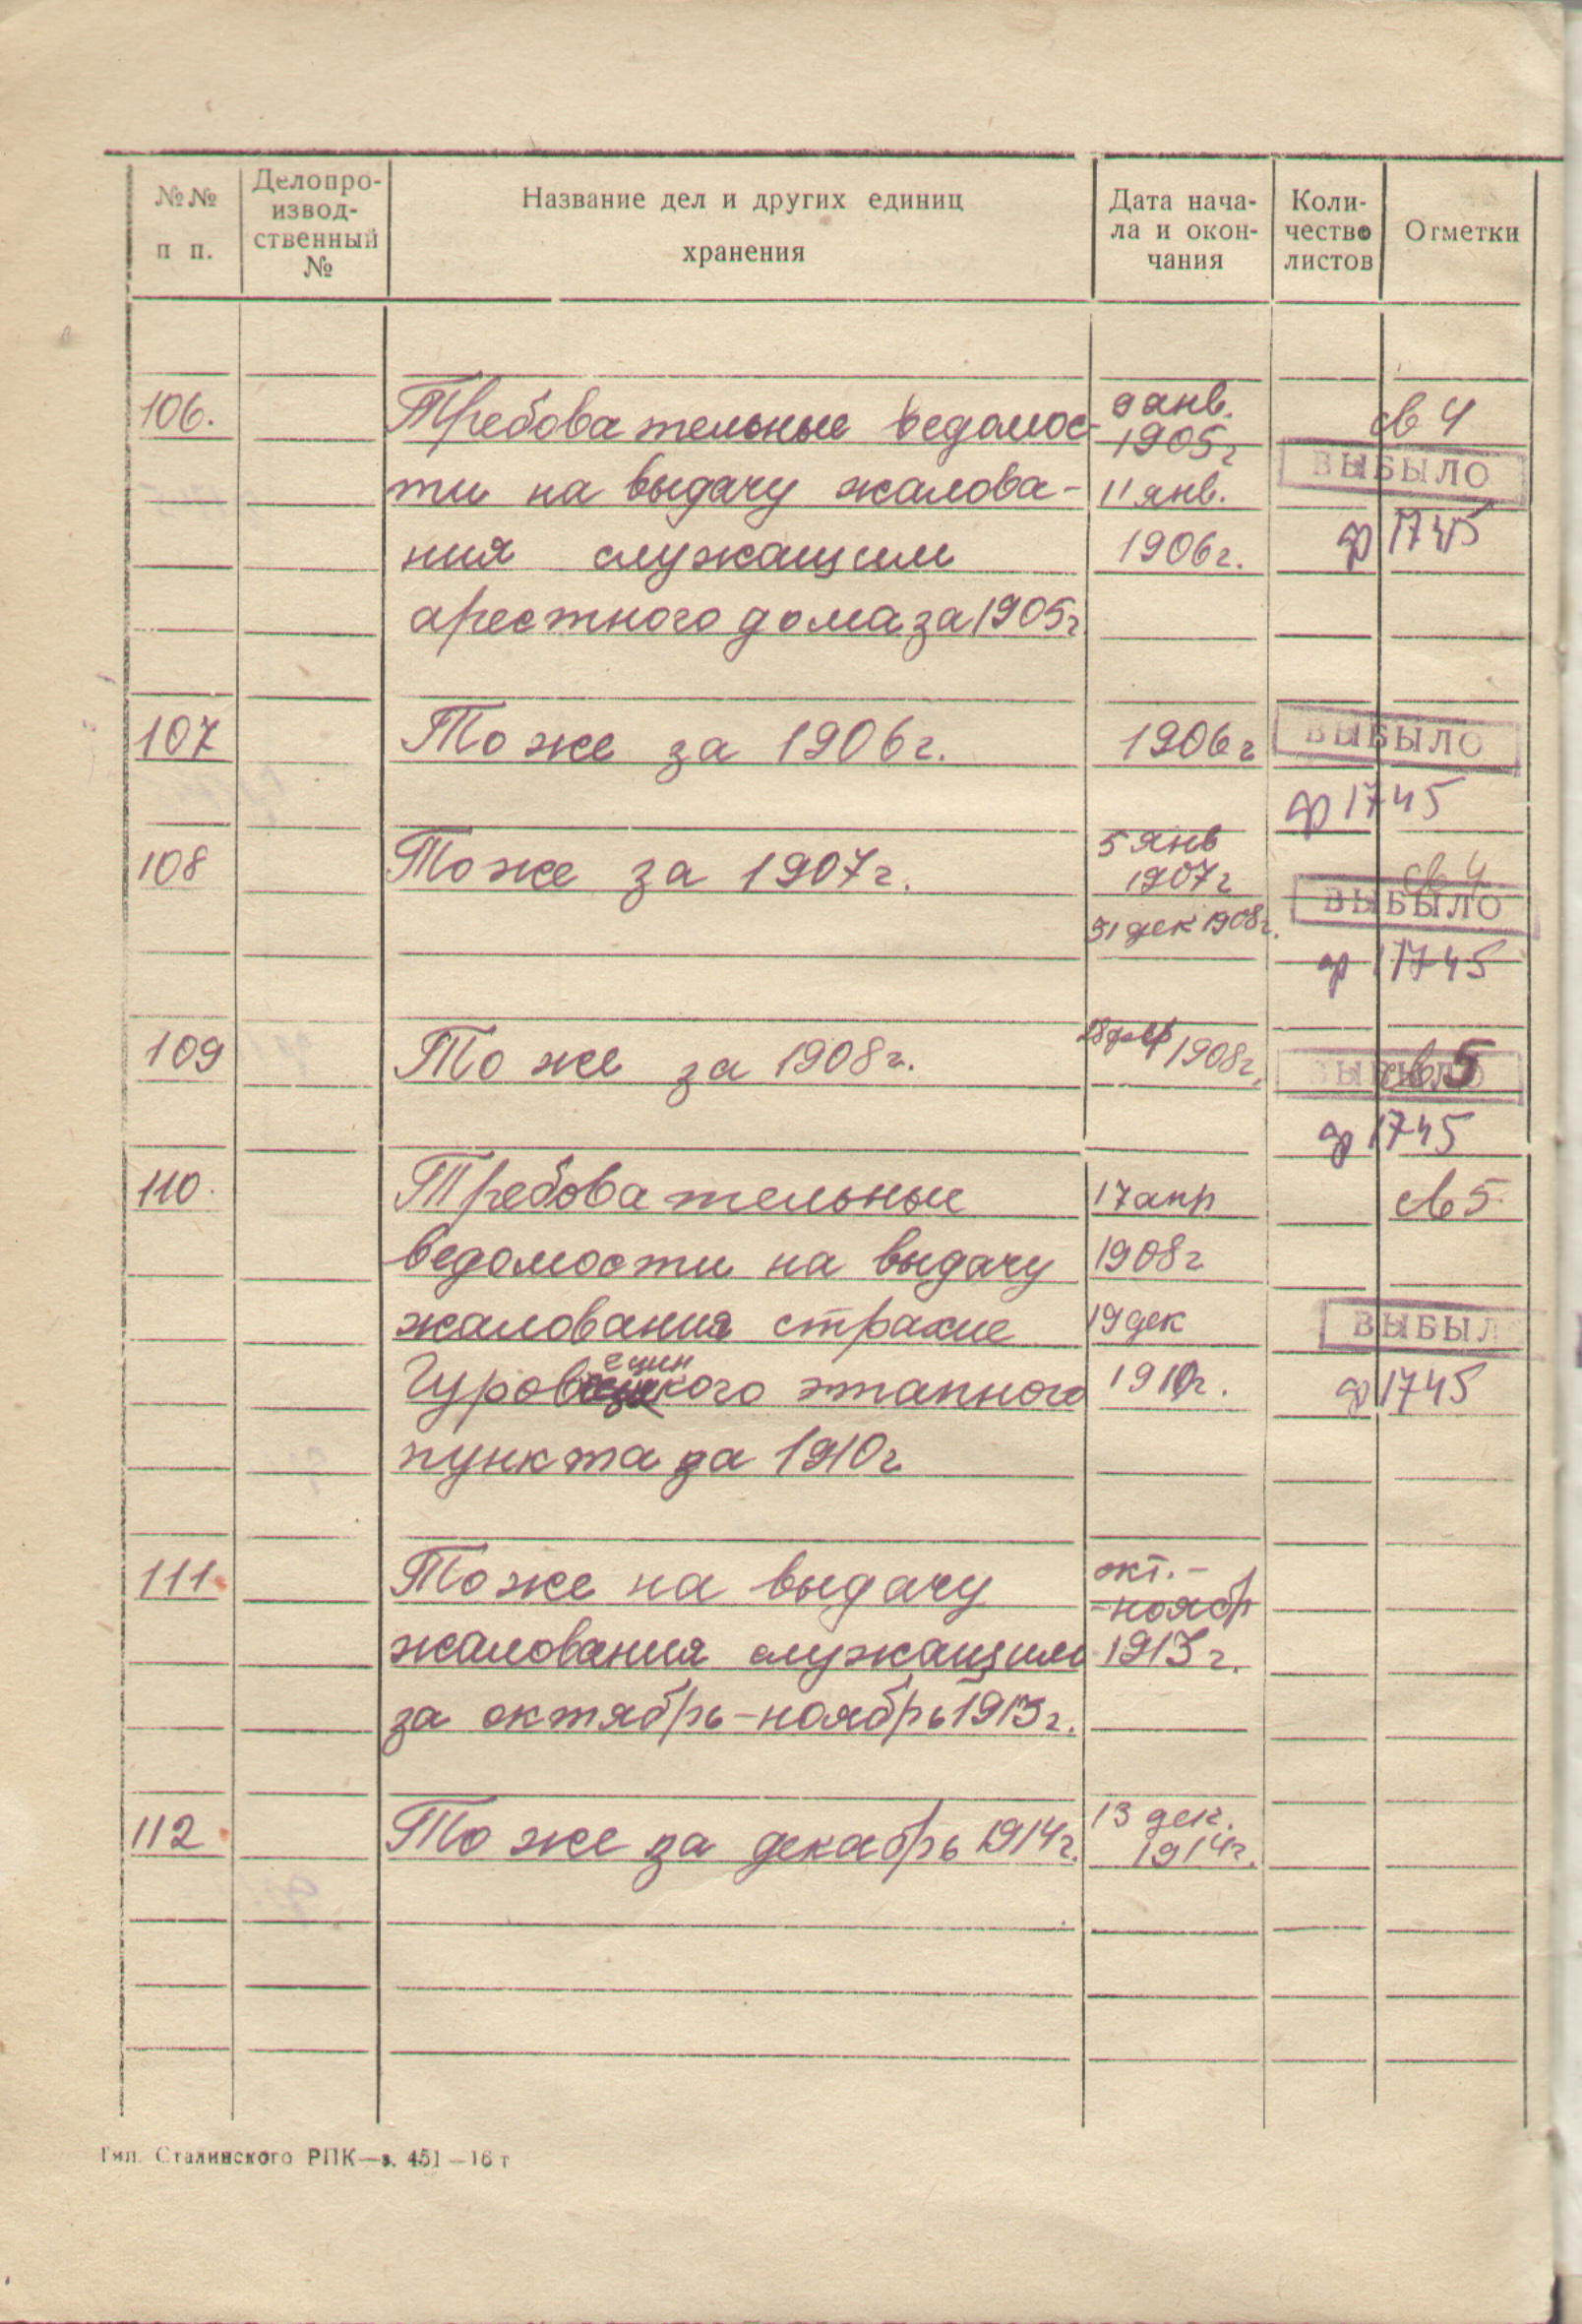 №№ п п.
Делопроизвод-ственный №
Название дел и других единиц хранения
Дата нача-ла и окон-чания
Коли-чество листов
Отметки
106. Требовательные ведомос- 9 янв. 1905г св 4
ти на выдачу жалова- 11 янв. ВЫБЫЛО
ния служащим 1906г. ф 1745
арестного дома за 1905г
107 То же за 1906г. 1906г ВЫБЫЛО
ф 1745
108 То же за 1907г. 5 янв 1907г св 4
31 дек 1908г. ВЫБЫЛО
ф 1745
109 То же за 1908г. 1908г. ВЫБЫЛО св 5
ф 1745
110. Требовательные 17 апр св 5
ведомости на выдачу 1908г
жалования страже 19 дек ВЫБЫЛ
кого этапного 1910г. ф 1745
пункта за 1910г
111 То же на выдачу окт.-
-ноябр
жалования служащим 1913г.
за октябрь-ноябрь 1913г.
112 То же за декабрь 1914г. 13 дек. 1914г.
Тип. Сталинского РПК—з. 451—16 т